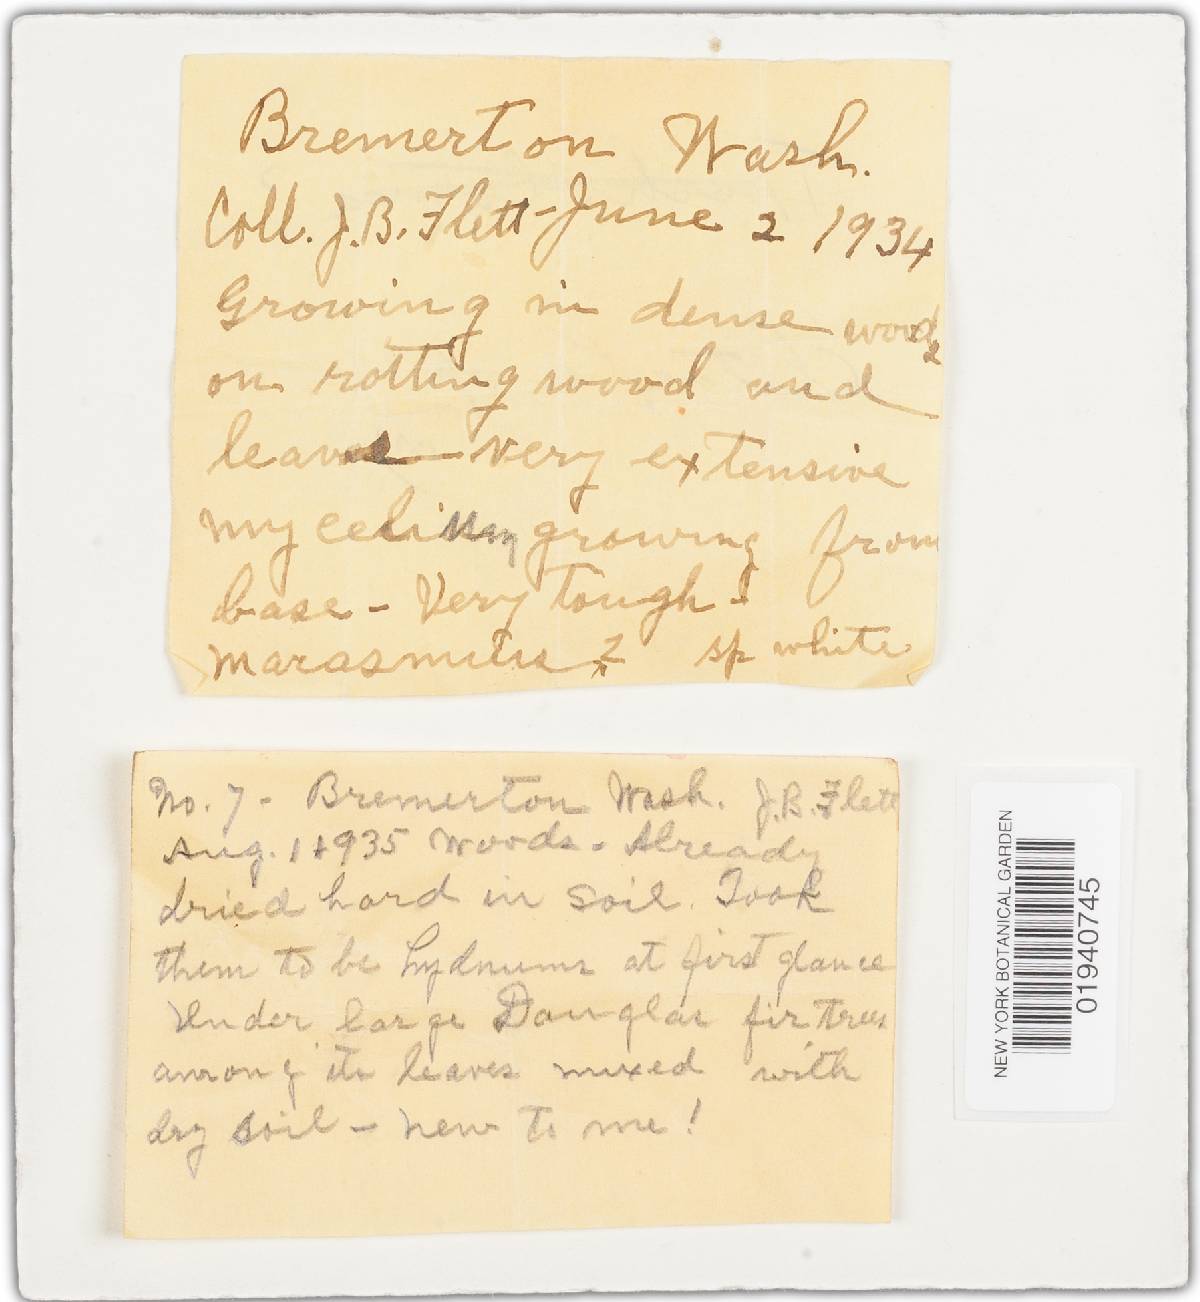 Bremerton Wash.
Coll. J.B. Flett-June 2 1934
Growing in dense woods
on rotting wood and
leaves - very extensive
mycelium growing from
base - Very tough -
Marasmius ? sp white
No. 7 - Bremerton Wash. J.B. Flett
Aug. 1 1935 Woods. Already
dried hard in soil. Took
them to be hydnums at first glance
Under large Douglas fir trees
among its leaves mixed with
dry soil - new to me!
NEW YORK BOTANICAL GARDEN
01940745